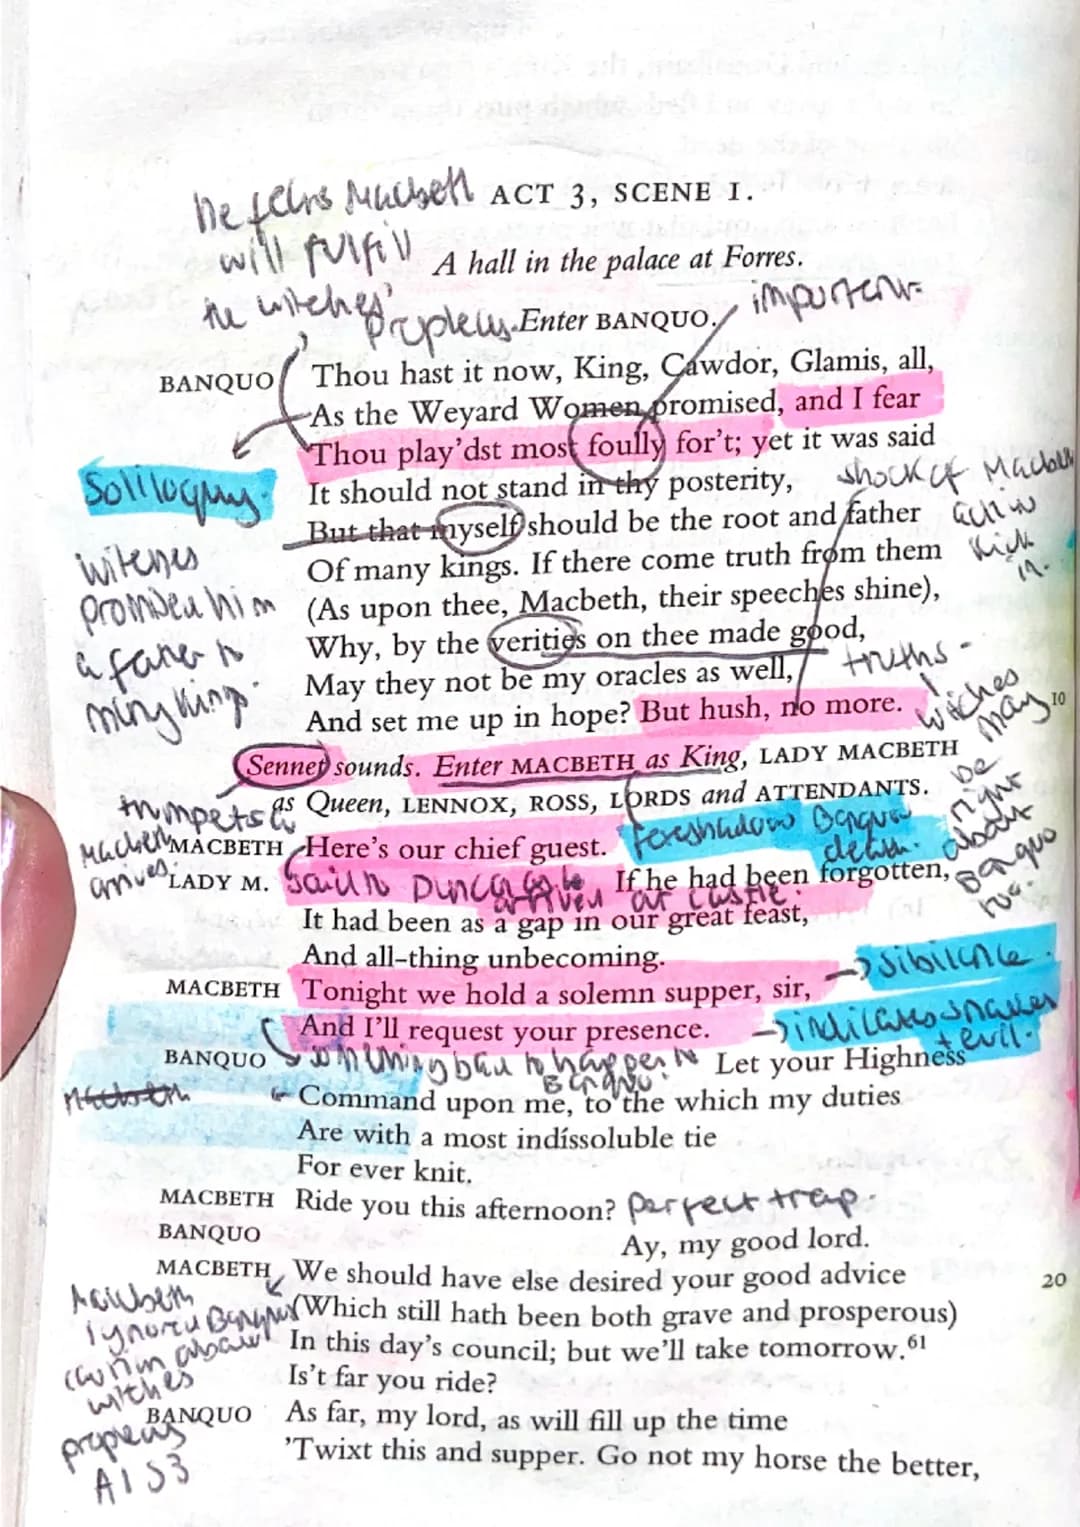 he fears Macbeth
will fulfill
the witches'
ACT 3, SCENE 1.
A hall in the palace at Forres.
important
Enter BANQUO.
BANQUO Thou hast it now, King, Cawdor, Glamis, all,
As the Weyard Women promised, and I fear
Thou play'dst most foully for't; yet it was said
It should not stand in thy posterity,
But that myself should be the root and father
Of many kings. If there come truth from them
(As upon thee, Macbeth, their speeches shine),
Why, by the verities on thee made good,
May they not be my oracles as well,
And set me up in hope? But hush, no more.
10
Soliloquy.
witches
promised him
many kings.
shock of Macbeth
kick
in.
truths -
witches
may
be
right
about
Banquo
too.
Sennet sounds. Enter MACBETH as King, LADY MACBETH
as Queen, LENNOX, ROSS, LORDS and ATTENDANTS.
trumpets as
Macbeth
arrives
MACBETH Here's our chief guest.
foreshadow Banquo
death.
LADY M. If he had been forgotten,
at castle.
It had been as a gap in our great feast,
And all-thing unbecoming.
MACBETH Tonight we hold a solemn supper, sir,
And I'll request your presence.
→ sibilance
→ indicates snakes
+ evil.
BANQUO Let your Highness
bad to happen to
Banquo.
Command upon me, to the which my duties
Are with a most indíssoluble tie
For ever knit.
MACBETH Ride you this afternoon?
perfect trap.
BANQUO Ay, my good lord.
MACBETH We should have else desired your good advice
20
(Which still hath been both grave and prosperous)
In this day's council; but we'll take tomorrow.61
Is't far you ride?
Macbeth
ignored Banquo
about
witches
A1 S3
BANQUO As far, my lord, as will fill up the time
'Twixt this and supper. Go not my horse the better,